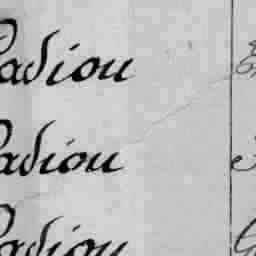 Padiou
Padiou
Padiou